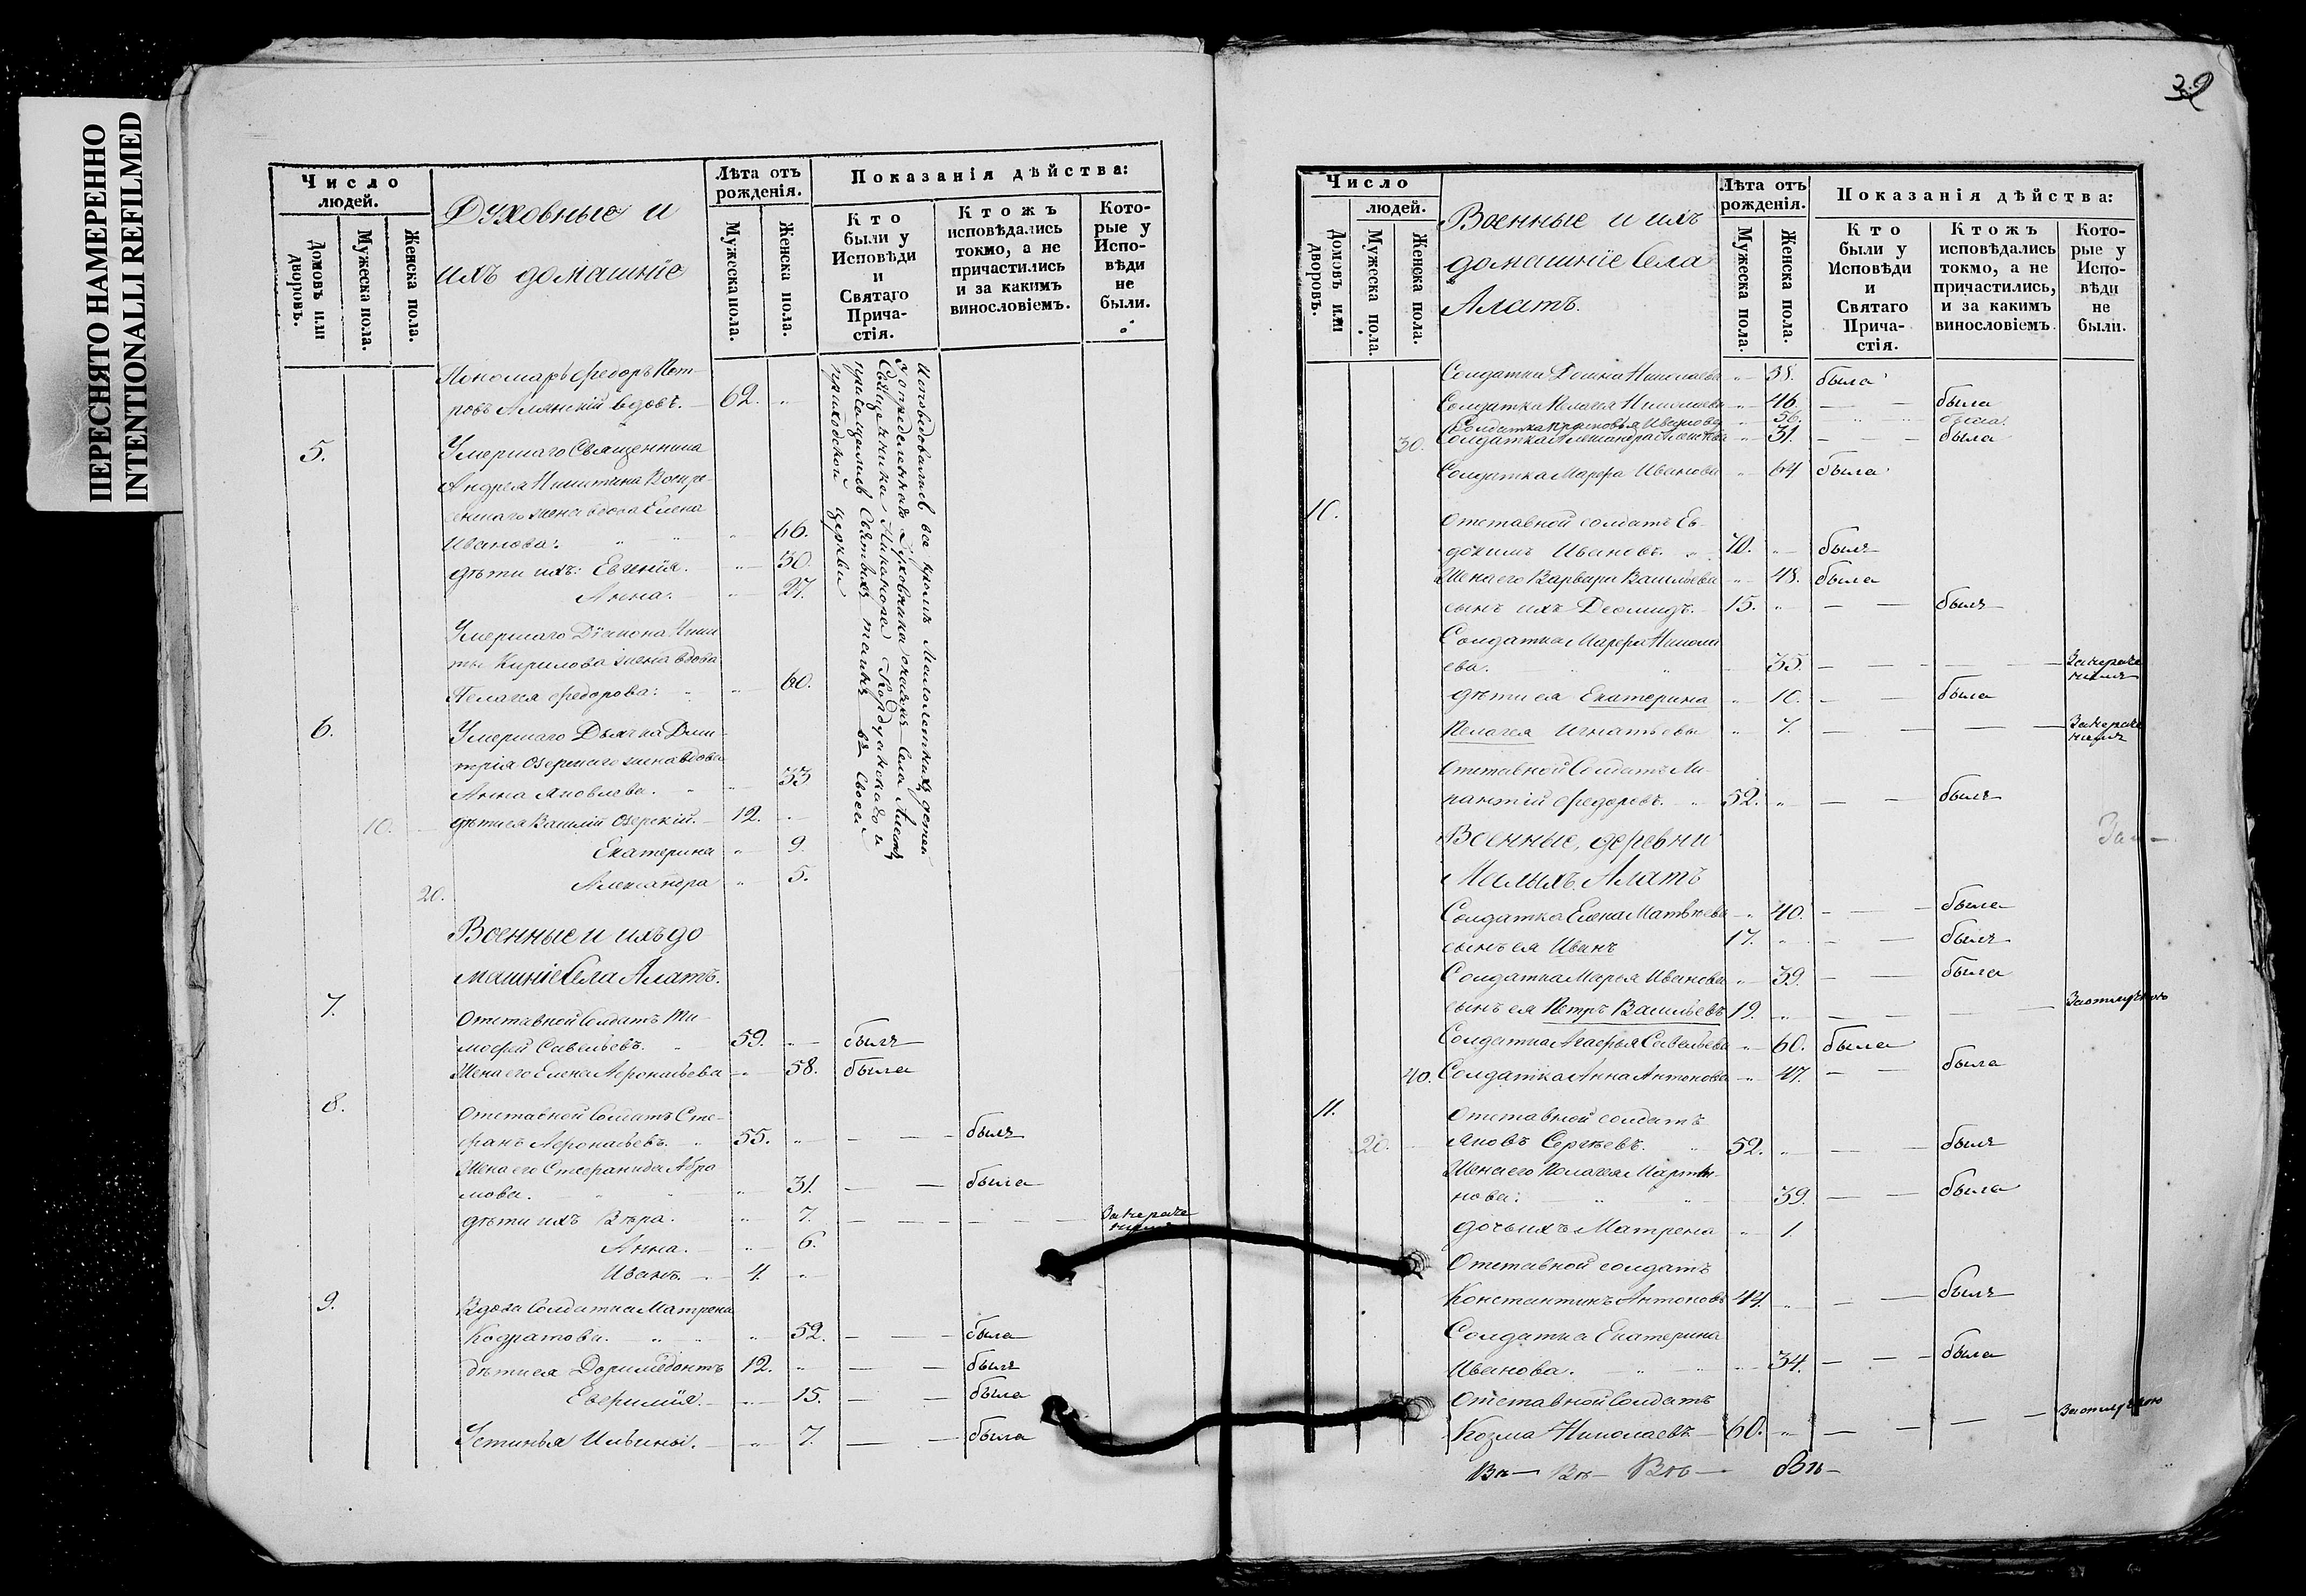 ПЕРЕСНЯТО НАМЕРЕННО
INTENTIONALLI REFILMED
Число людей.
Домовъ или дворовъ.
Мужеска пола.
Женска пола.
Духовные и
ихъ домашніе
Лѣта отъ рожденія.
Мужеска пола.
Женска пола.
Показанія дѣйства:
Кто были у Исповѣди и Святаго Причастія.
Ктожъ исповѣдались токмо, а не причастились и за какимъ винословіемъ.
Которые у Исповѣди не были.
Пономарь Ѳедоръ Пет-
ровъ Алянскій вдовъ. 62. "
5. Умершаго Священника
Андрея Никитина Воскре-
сенскаго жена вдова Елена
Иванова. " 66.
дѣти ихъ: Евгенія. " 30.
Анна. " 27.
Умершаго Діакона Ники
ты Кирилова жена вдова
Пелагея Ѳедорова: " 60.
6. Умершаго Дьячка Дми-
трія Озерскаго жена вдова
Анна Яковлева. " 33
10. дѣти ея Василій Озерскій. 12. "
Екатерина " 9.
Александра " 5.
20.
Исповѣдовались все кромѣ малолетнихъ детей
у определеннаго Духовника оныхъ Села Алатъ
Священника Никанора и
причащались Святыхъ таинъ въ своей
приходской церкви
Военные и ихъ до
машніе Села Алатъ.
7. Отставной Солдатъ Ти-
моѳей Савельевъ. 59. " былъ
Жена его Елена Аѳонасьева " 58. была
8. Отставной Солдатъ Сте-
фанъ Аѳонасьевъ. 55. " — — былъ
Жена его Стефанида Абра
мова. " 31. — — была
дѣти ихъ Вѣра. " 7. — — — — За нераче
ніемъ
Анна. " 6.
Иванъ. 4. "
9. Вдова Солдатка Матрена
Кодратова. " 52. — — была
дѣти ея Доримедонтъ 12. " — — былъ
Евфимія. " 15. — — была
Устинья Ильины. " 7. — — была
39
Число людей.
Домовъ или дворовъ.
Мужеска пола.
Женска пола.
Военные и ихъ
домашніе Села
Алатъ.
Лѣта отъ рожденія.
Мужеска пола.
Женска пола.
Показанія дѣйства:
Кто были у Исповѣди и Святаго Причастія.
Ктожъ исповѣдались токмо, а не причастились, и за какимъ винословіемъ.
Которые у Исповѣди не были.
Солдатка Домна Николаева " 38. была
Солдатка Пелагея Николаева " 46 — была
Солдатка Прасковья Иванова " 56. была.
30. Солдатка Александра " 31. — — была
Солдатка Марѳа Иванова " 64 была
10. Отставной солдатъ Ев-
докимъ Ивановъ. 70. " былъ
Жена его Варвара Васильева " 48. была
сынъ ихъ Деомидъ. 15. " — — былъ
Солдатка Марѳа Никола
ева. " 35. — — — — За нераче
ніемъ
дѣти ея Екатерина " 10. — — была
Пелагея Игнатьевы " 7. — — — — За нераче
ніемъ
Отставной Солдатъ
Ѳедоровъ. 52. " — — былъ
Военные, деревни
Малыхъ Алатъ
Солдатка Елена Матвѣева " 40. — — была
сынъ ея Иванъ 17. " — — былъ
Солдатка Марья Иванова " 39. — — была
сынъ ея Петръ Васильевъ 19. " — — — За отлучкою
Солдатка Агаѳья Савельева " 60. была
40. Солдатка Анна Антонова " 47. — — была
11. Отставной солдатъ
20. Яковъ Сергѣевъ. 52. " — — былъ
Жена его Пелагея Марты-
нова: " 39. — — была
дочь ихъ Матрена " 1
Отставной солдатъ
Константинъ Антоновъ 44. " — — былъ
Солдатка Екатерина
Иванова. " 34. — — была
Отставной Солдатъ
Козма Николаевъ 60. " — — — За отлучкою